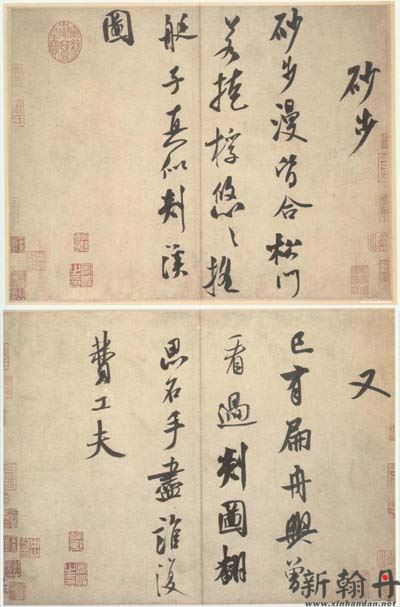 砂步
砂步漫皆合松門
若掩桴悠々搖
艇子真似剡溪
圖
又
已有扁舟興曾
看過剡圖翻
思名手盡誰復
費工夫
新翰丹
www.xinhandan.net